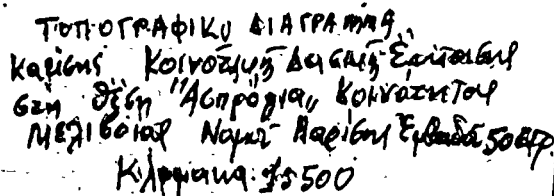 ΤΟΠΟΓΡΑΦΙΚΟ ΔΙΑΓΡΑΜΜΑ
Κοινοτικής Δασικής Εκτάσεως
στη θέση "Ασπρόγια" Κοινότητος
Μελισσίας Νομού Λαρίσης Εμβαδά 50 στρ.
Κλίμακα 1:500